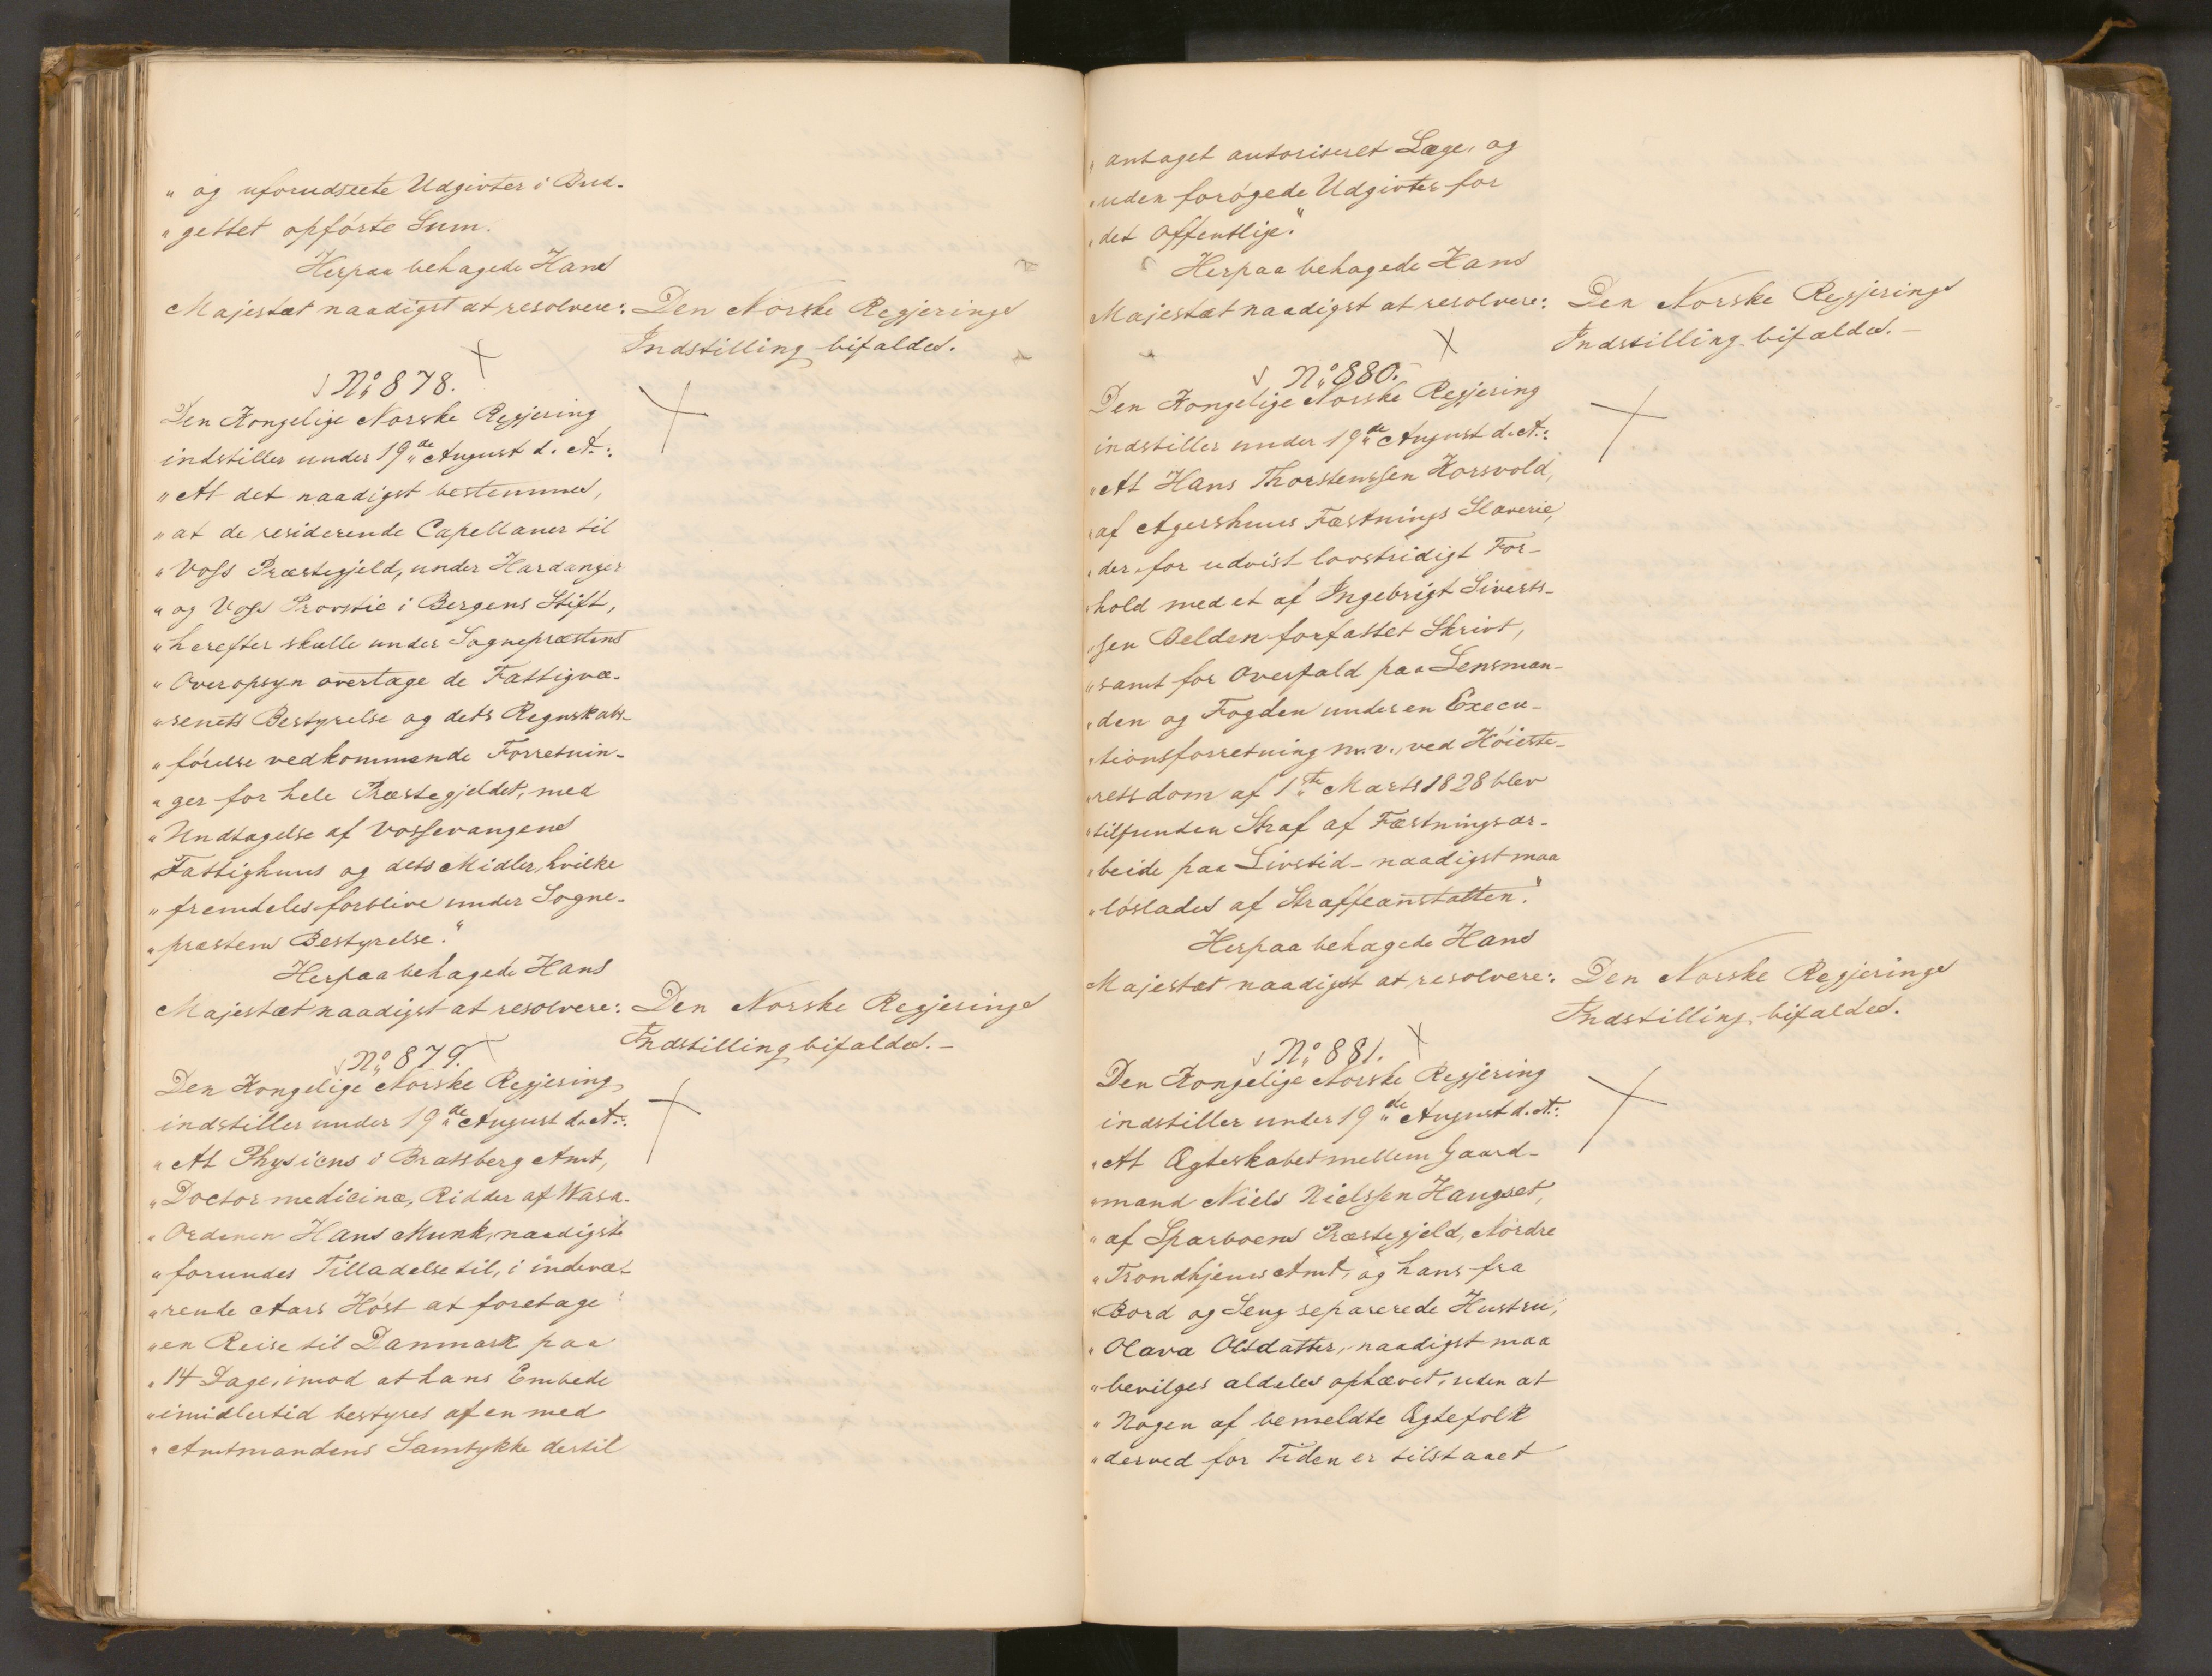 „ og uforudseete Udgivter i Bud-
„ gettet opførte Sum.
Herpaa behagede Hans
Majestæt naadigst at resolvere: Den Norske Regjerings
Indstilling bifaldes.
No 878.
Den Kongelige Norske Regjering
indstiller under 19de August d. A.:
„ At det naadigst bestemmes,
„ at de residerende Capellaner til
„ Voss Præstegjeld, under Hardanger
„ og Voss Provstie i Bergens Stift,
„ herefter skulle under Sognepræstens
„ Overopsyn overtage de Fattigvæ-
„ senets Bestyrelse og dets Regnskabs-
„ førelse vedkommende Forretnin-
„ ger for hele Præstegjeldet, med
„ Undtagelse af Vossevangens
„ Fattighuus og dets Midler, hvilke
„ fremdeles forblive under Sogne-
„ præstens Bestyrelse."
Herpaa behagede Hans
Majestæt naadigst at resolvere: Den Norske Regjerings
Indstilling bifaldes. -
No 879.
Den Kongelige Norske Regjering
indstiller under 19de August d. A.:
„ At Physicus i Bratsberg Amt,
„ Doctor medicinæ, Ridder af Wasa-
„ Ordenen Hans Munk, naadigst
„ forundes Tilladelse til, i indevæ-
„ rende Aars Høst at foretage
„ en Reise til Danmark paa
„ 14 Dage, imod at hans Embede
„ imidlertid bestyres af en med
„ Amtmandens Samtykke dertil
„ antaget autoriseret Læge, og
„ uden forøgede Udgivter for
„ det Offentlige."
Herpaa behagede Hans
Majestæt naadigst at resolvere: Den Norske Regjerings
Indstilling bifaldes. -
No 880.
Den Kongelige Norske Regjering
indstiller under 19de August d. A.:
„ At Hans Thorstenssen Korsvold,
„ af Agershuus Fæstnings Slaverie,
„ der, for udvist lovstridigt For-
„ hold med et af Ingebrigt Siverts-
„ sen Belden forfattet Skrivt,
„ samt for Overfald paa Lensman-
„ den og Fogden under en Execu-
„ tionsforretning m.v., ved Høieste-
„ retsdom af 1ste Marts 1828 blev
„ tilfunden Straf af Fæstningsar-
„ beide paa Livstid - naadigst maa
„ løslades af Straffeanstalten."
Herpaa behagede Hans
Majestæt naadigst at resolvere: Den Norske Regjerings
Indstilling bifaldes.
No 881.
Den Kongelige Norske Regjering
indstiller under 19de August d. A.:
„ At Ægteskabet mellem Gaard-
„ mand Niels Nielssen Haugset,
„ af Sparboens Præstegjeld, Nordre
„ Trondhjems Amt, og hans fra
„ Bord og Seng separerede Hustru,
„ Olava Olsdatter, naadigst maa
„ bevilges aldeles ophævet, uden at
„ Nogen af bemeldte Ægtefolk
„ derved for Tiden er tilstaaet